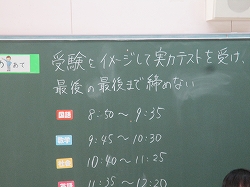 めあて
受験をイメージして実力テストを受け、
最後の最後まで締めない
国語 8:50～9:35
数学 9:45～10:30
社会 10:40～11:25
英語 11:35～12:20